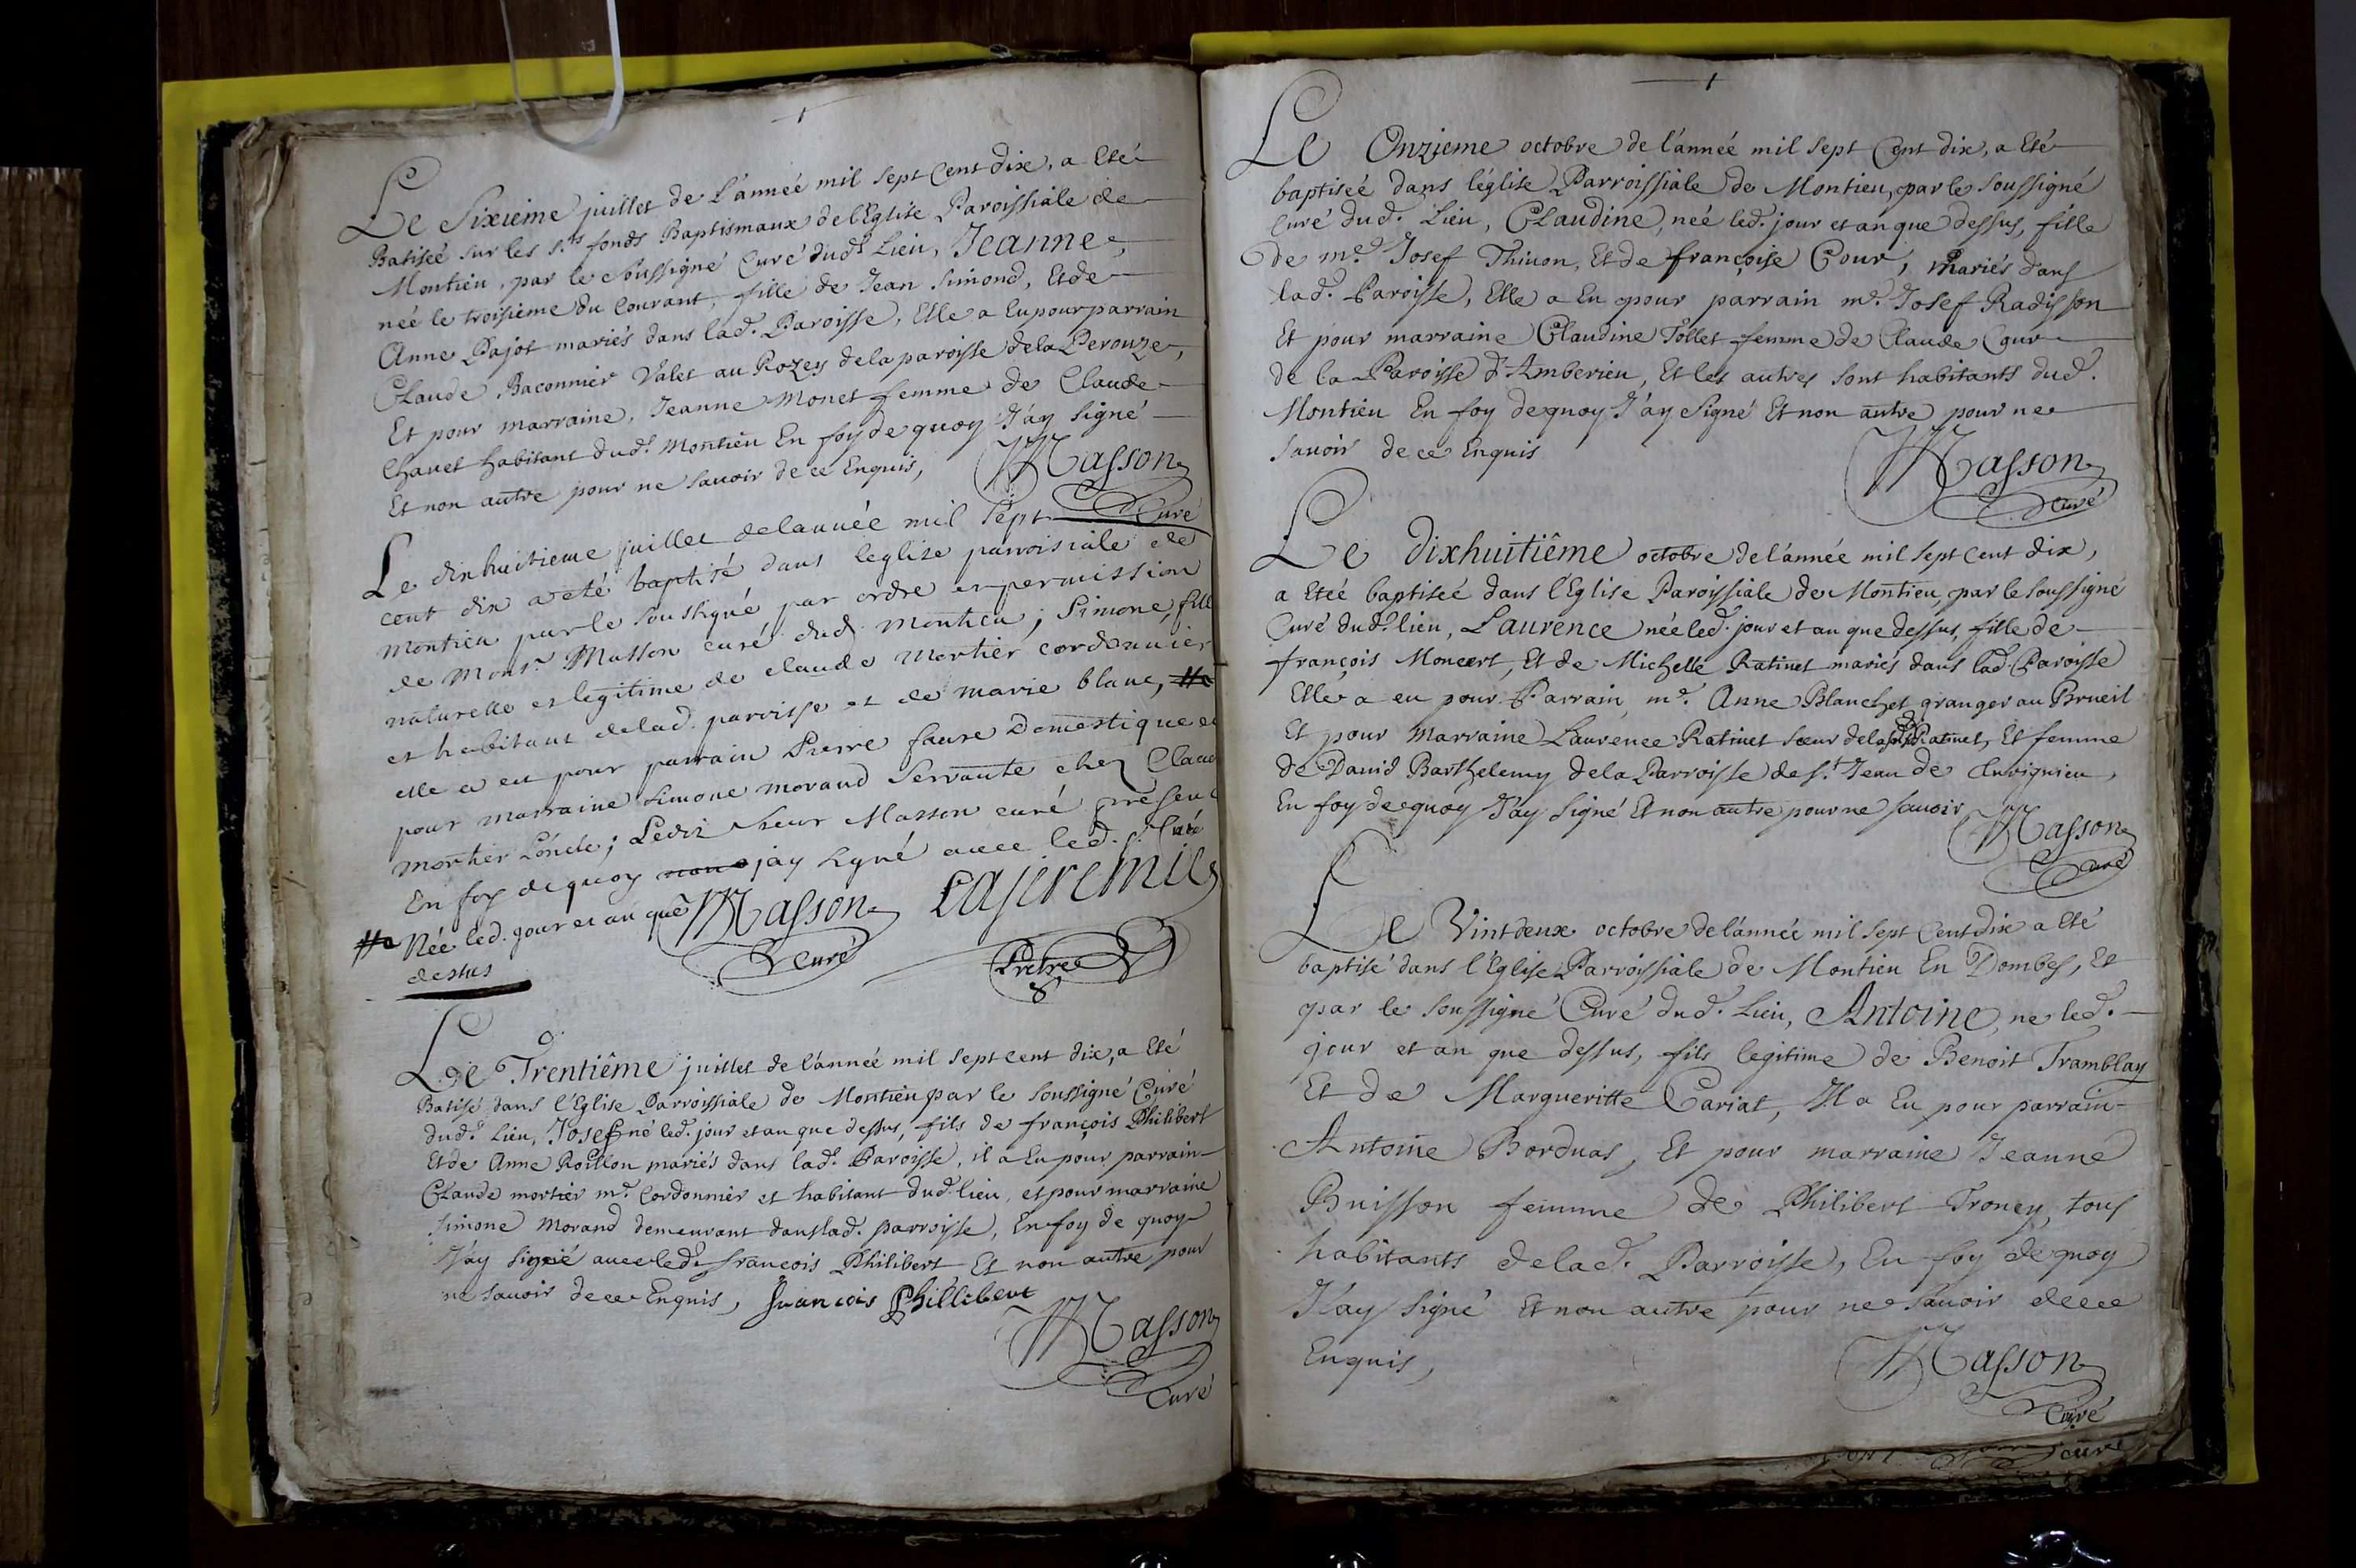 Le Sixieme juillet de L'année mil sept cent dix, a Eté
Batiseé sur les s.ts fonds Baptismaux de l'Eglise Paroissiale de
Montieu, par le Soussigné Curé dud.t Lieu, Jeanne,
neé le troisieme du Courant, fille de Jean Simond, Et de
Anne Pajot mariés dans lad.e Paroisse, Elle a Eu pour parrain
Claude Baconnier Valet au Rozey de la paroisse de la Perouze,
Et pour marraine, Jeanne Monet femme de Claude
Chanel habitant dud.t Montieu En foy de quoy J'ay Signé
Et non autre pour ne savoir de ce Enquis,
Masson
Curé
Le dixhuitieme juillet de lannée mil sept
cent dix a eté baptisé dans leglise parroisiale de
montieu par le soussigné par ordre et permission
de Mons.r Masson curé dud. montieu; Simone, fille
naturelle et legitime de claude Mortier cordonnier
et habitant de lad. parroisse et de marie blanc,
elle a eu pour parrain Pierre faure Domestique et
pour marraine Simone morand Servante chez Claude
mortier Loncle; Ledit sieur Masson curé present
En foy de quoy jay signé avec led. s.r Curé
Née led. jour et an que
dessus
Masson
Curé
Lajeremie
Pretre
Le Trentiême juillet de l'année mil sept cent dix, a Eté
Batisé dans l'Eglise Parroissiale de Montieu par le Soussigné Curé
dud.t Lieu, Josef né led. jour et an que dessus, fils de françois Philibert
Et de Anne Roillon mariés dans lad.e Paroisse, il a Eu pour parrain
Claude mortier m.e Cordonnier et habitant dud. lieu, et pour marraine
Simone Morand demeurant dans lad. parroisse, En foy de quoy
J'ay Signé avec led. françois Philibert Et non autre pour
ne savoir de ce Enquis, francois Phillibert
Masson
Curé
Le Onzieme octobre de l'anneé mil sept Cent dix, a Eté
baptiseé dans l'église Parroissiale de Montieu, par le soussigné
Curé dud. Lieu, Claudine, neé led. jour et an que dessus, fille
de m.e Josef Thiuon, Et de françoise Cour, mariés dans
lad. Paroisse, Elle a Eu pour parrain m.e Josef Radisson
Et pour marraine Claudine Tollet femme de Claude Cour
de la Paroisse d'Amberieu, Et les autres sont habitants dud.
Montieu En foy de quoy J'ay Signé Et non autre pour ne
savoir de ce Enquis
Masson
Curé
Le dixhuitiême octobre de l'année mil sept cent dix,
a Eteé baptiseé dans l'Eglise Paroissiale de Montieu, par le soussigné
Curé dud. lieu, Laurence née led. jour et an que dessus, fille de
françois Moncert, Et de Michelle Ratinet mariés dans lad. Paroisse
Elle a eu pour Parrain m.e Anne Blanchet granger au Brueil
Et pour Marraine Laurence Ratinet sœur de lad. Ratinet, Et femme
de David Barthelemy de la Parroisse de s.t Jean de
En foy de quoy J'ay Signé Et non autre pour ne savoir
Masson
Curé
Le Vint deux octobre de l'année mil sept Cent dix a Eté
baptisé dans l'Eglise Parroissiale de Montieu En Dombes, Et
par le soussigné Curé dud. Lieu, Antoine, ne led.
jour et an que dessus, fils legitime de Benoit Tramblay
Et de Margueritte Cariat, Il a Eu pour parrain
Antoine Borduas, Et pour marraine Jeanne
Buisson femme de Philibert Troney, tous
habitants de lad. Parroisse, En foy de quoy
J'ay Signé Et non autre pour ne savoir de ce
Enquis,
Masson
Curé
curé